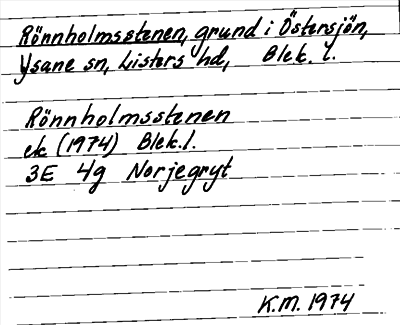 Rönnholmsstenen, grund i Östersjön,
Ysane sn, Listers hd, Blek. l.
Rönnholmsstenen
ek (1974) Blek. l.
3E 4g Norjegryt
K.M. 1974